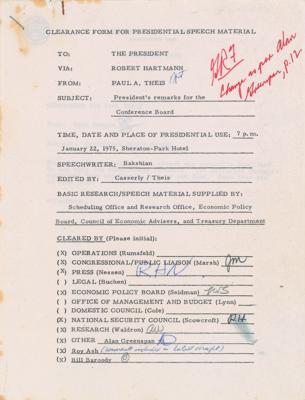 CLEARANCE FORM FOR PRESIDENTIAL SPEECH MATERIAL
TO: THE PRESIDENT
VIA: ROBERT HARTMANN
FROM: PAUL A. THEIS
SUBJECT: President's remarks for the
Conference Board
Change as per Alan
Greenspan, p. 12
TIME, DATE AND PLACE OF PRESIDENTIAL USE: 7 p.m.
January 22, 1975, Sheraton-Park Hotel
SPEECHWRITER: Bakshian
EDITED BY: Casserly / Theis
BASIC RESEARCH/SPEECH MATERIAL SUPPLIED BY:
Scheduling Office and Research Office, Economic Policy
Board, Council of Economic Advisers, and Treasury Department
CLEARED BY (Please initial):
(X) OPERATIONS (Rumsfeld)
(X) CONGRESSIONAL/PUBLIC LIAISON (Marsh) Jm
(X) PRESS (Nessen) RHN
( ) LEGAL (Buchen)
(X) ECONOMIC POLICY BOARD (Seidman)
( ) OFFICE OF MANAGEMENT AND BUDGET (Lynn)
( ) DOMESTIC COUNCIL (Cole)
(X) NATIONAL SECURITY COUNCIL (Scowcroft) RH
(X) RESEARCH (Waldron)
(X) OTHER Alan Greenspan
(X) Roy Ash (comments included in latest draft)
(X) Bill Baroody